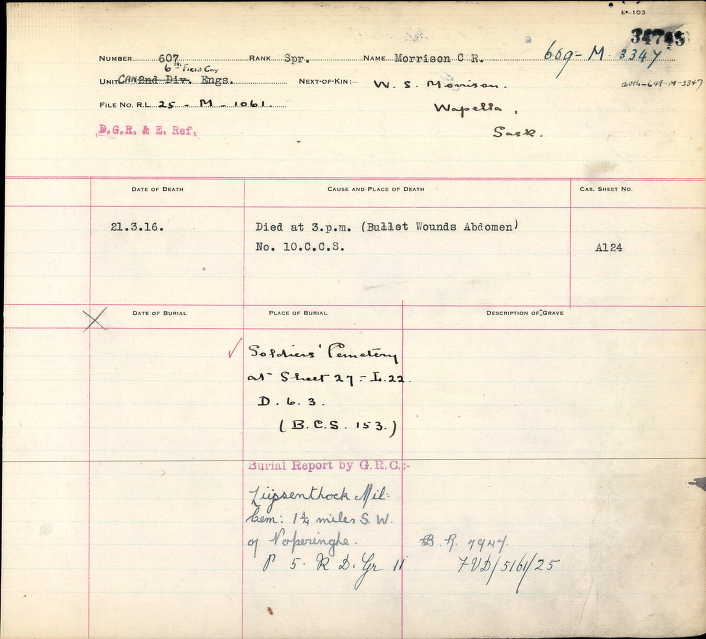 34743
NUMBER 607 RANK Spr. NAME Morrison C R. 609-M-3347
6th Field Coy
UNIT Can 2nd Div. Engs. NEXT-OF-KIN:- W. S. Morrison.
649-M-3347
FILE NO. R.L. 25-M-1061. Wapella,
D.G.R. & E. Ref. Sask.
DATE OF DEATH CAUSE AND PLACE OF DEATH CAS. SHEET NO.
21.3.16. Died at 3.p.m. (Bullet Wounds Abdomen)
No. 10.C.C.S. A124
DATE OF BURIAL PLACE OF BURIAL DESCRIPTION OF GRAVE
Soldiers' Cemetery
at Sheet 27 - L.22.
D. 6. 3.
(B.C.S. 153.)
Burial Report by G.R.C.:-
Lijssenthock Mil:
Cem: 1¼ miles S.W.
of Poperinghe. B.R. 7947.
P 5. R D. Gr 11 FVD/5161/25